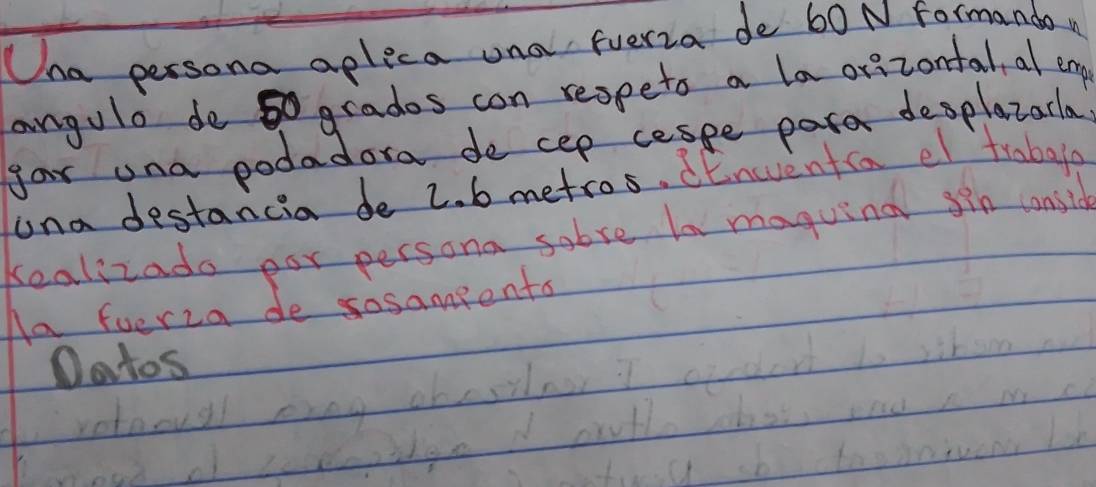 Una persona aplica una fuerza de 60 N formando n
angulo de 50 grados con respeto a la orizontal, al empu
gar una podadora de cep cespe para desplazarla
una destancia de 2.6 metros. ¿Encuentra el trabajo
realizado por persona sobre la maquina sin conside
la fuerza de sosamiento
Datos